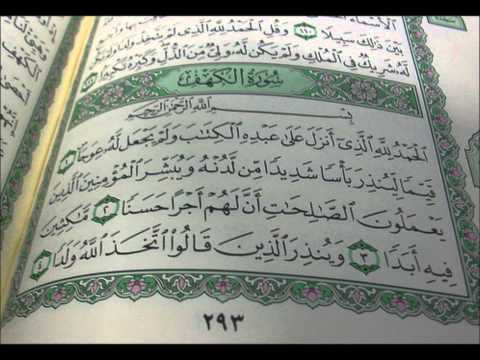 الأسماء
بين ذلك سبيلا ١١٠ وقل الحمد لله الذي لم يتخذ ولدا ولم يكن
له شريك في الملك ولم يكن له ولي من الذل وكبره تكبيرا ١١١
سورة الكهف
بسم الله الرحمن الرحيم
الحمد لله الذي أنزل على عبده الكتاب ولم يجعل له عوجا ١
قيما لينذر بأسا شديدا من لدنه ويبشر المؤمنين الذين
يعملون الصالحات أن لهم أجرا حسنا ٢ ماكثين
فيه أبدا ٣ وينذر الذين قالوا اتخذ الله ولدا ٤
٢٩٣